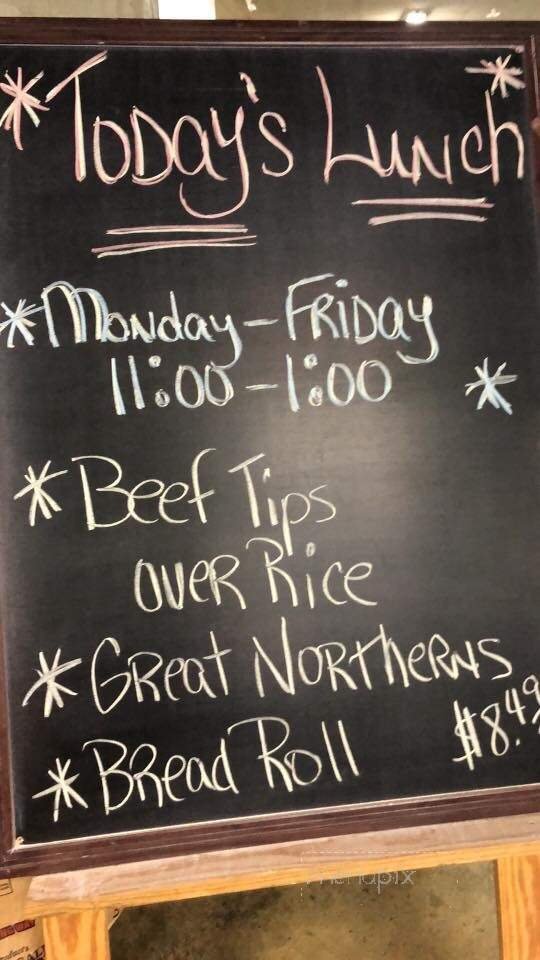 *Today's Lunch*
*Monday-Friday
11:00-1:00 *
*Beef Tips
over Rice
*Great Northerns
$8.49
*Bread Roll
menupix